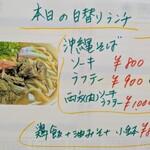 本日の日替りランチ
沖縄そば
ソーキ ¥800
ラフテー ¥900
ソーキ
ラフテー ¥1,000
鶏飯+油みそ+小鉢